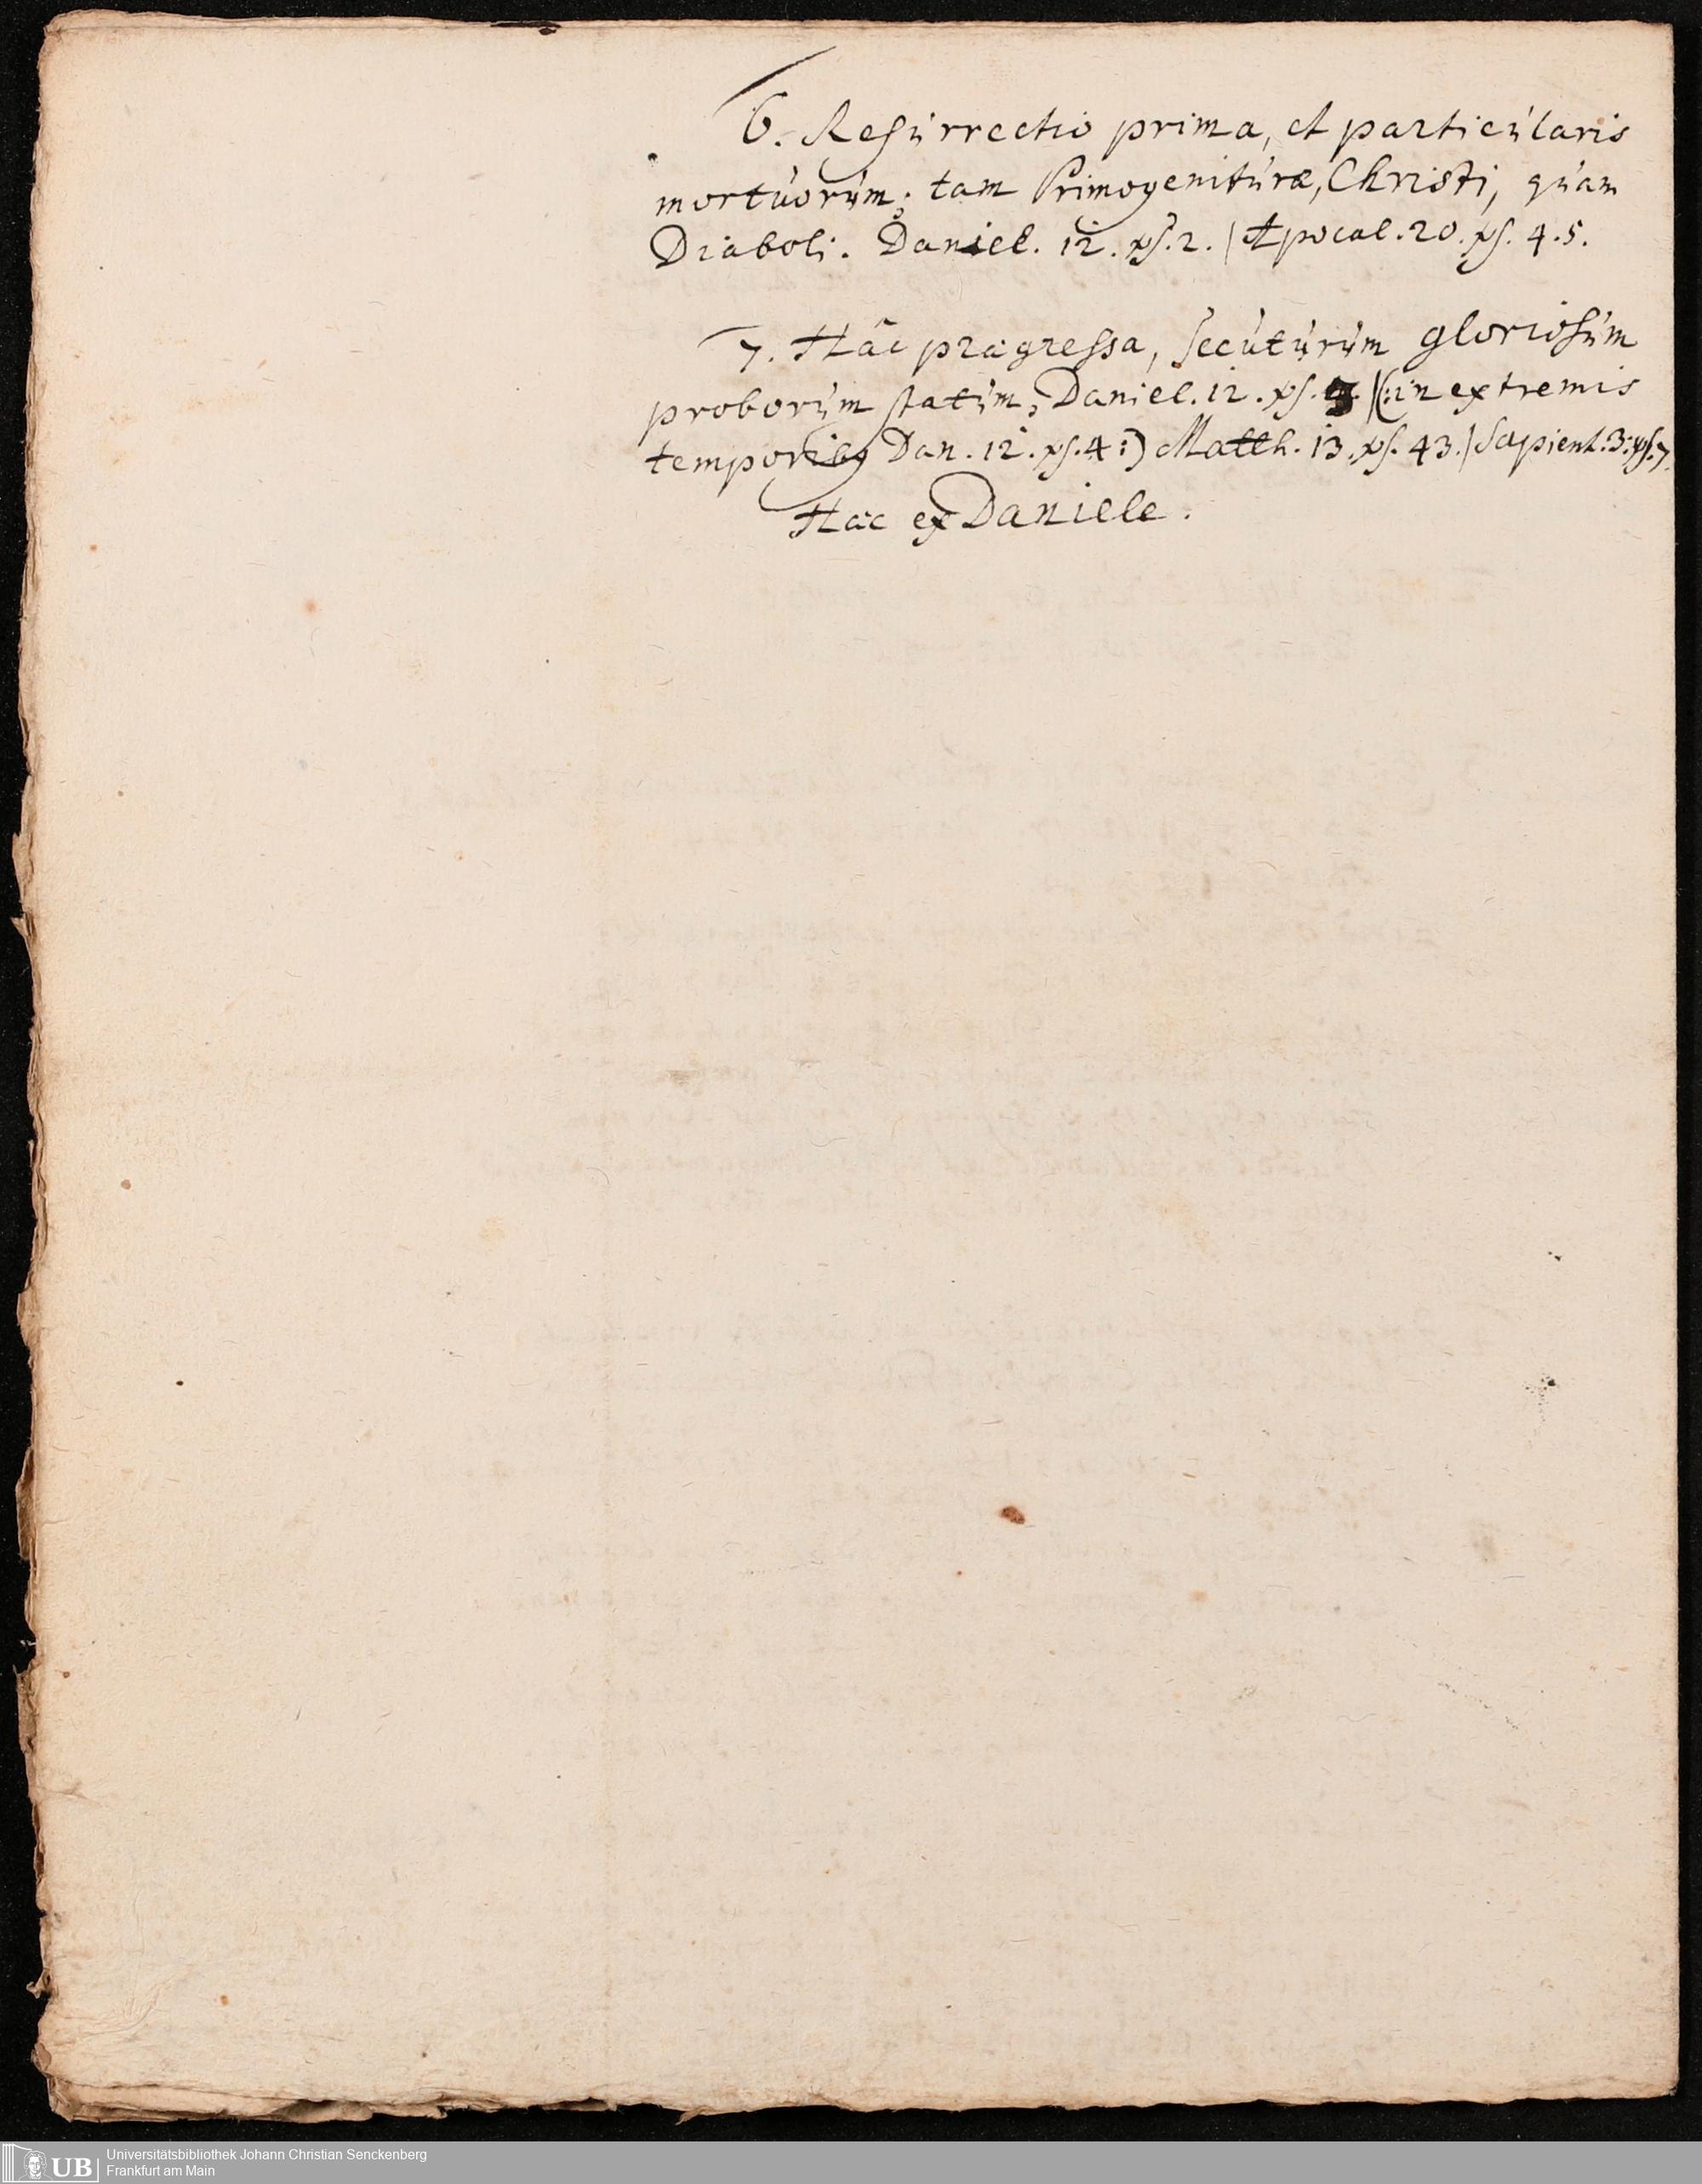 6. Resurrectio prima, et particularis
mortuorum; tam Primogenituræ, Christi, quam
Diaboli. Daniel. 12. vs. 2. | Apocal. 20. vs. 4. 5.
7. Hâc prægressa, secuturum gloriosum
proborum statum, Daniel. 12. vs. 3. |(: in extremis
temporibus Dan. 12. vs. 4 :) Matth. 13. vs. 43. | Sapient. 3. vs. 7.
Hæc ex Daniele.
UB
Universitätsbibliothek Johann Christian Senckenberg
Frankfurt am Main